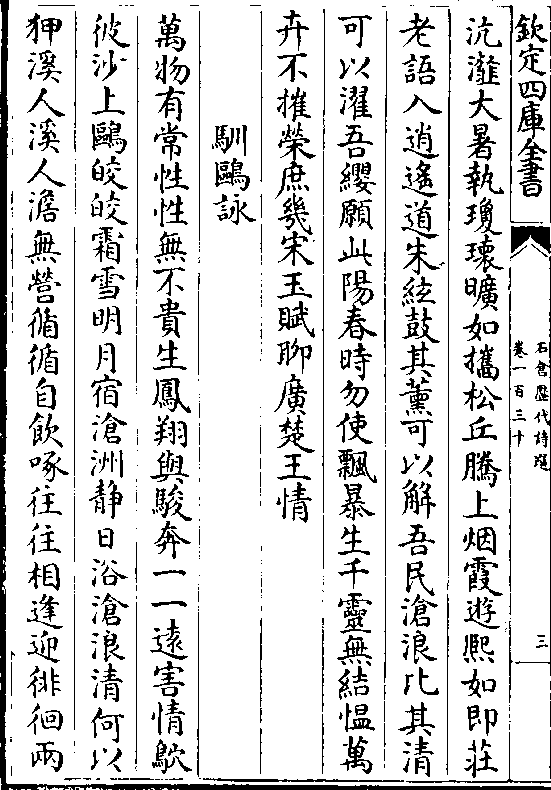 欽定四庫全書
石倉歴代詩選
卷一百三十
三
沆瀣大暑執瓊瓌曠如攜松丘騰上烟霞遊熙如即莊
老語入逍遙道朱絃鼓其薰可以解吾民滄浪比其清
可以濯吾纓願此陽春時勿使飄暴生千靈無結愠萬
卉不摧榮庶幾宋玉賦聊廣楚王情
馴鷗詠
萬物有常性性無不貴生鳳翔與駿奔一一遠害情歘
彼沙上鷗皎皎霜雪明月宿滄洲静日浴滄浪清何以
狎溪人溪人澹無營循循自飲啄往往相逢迎徘徊兩